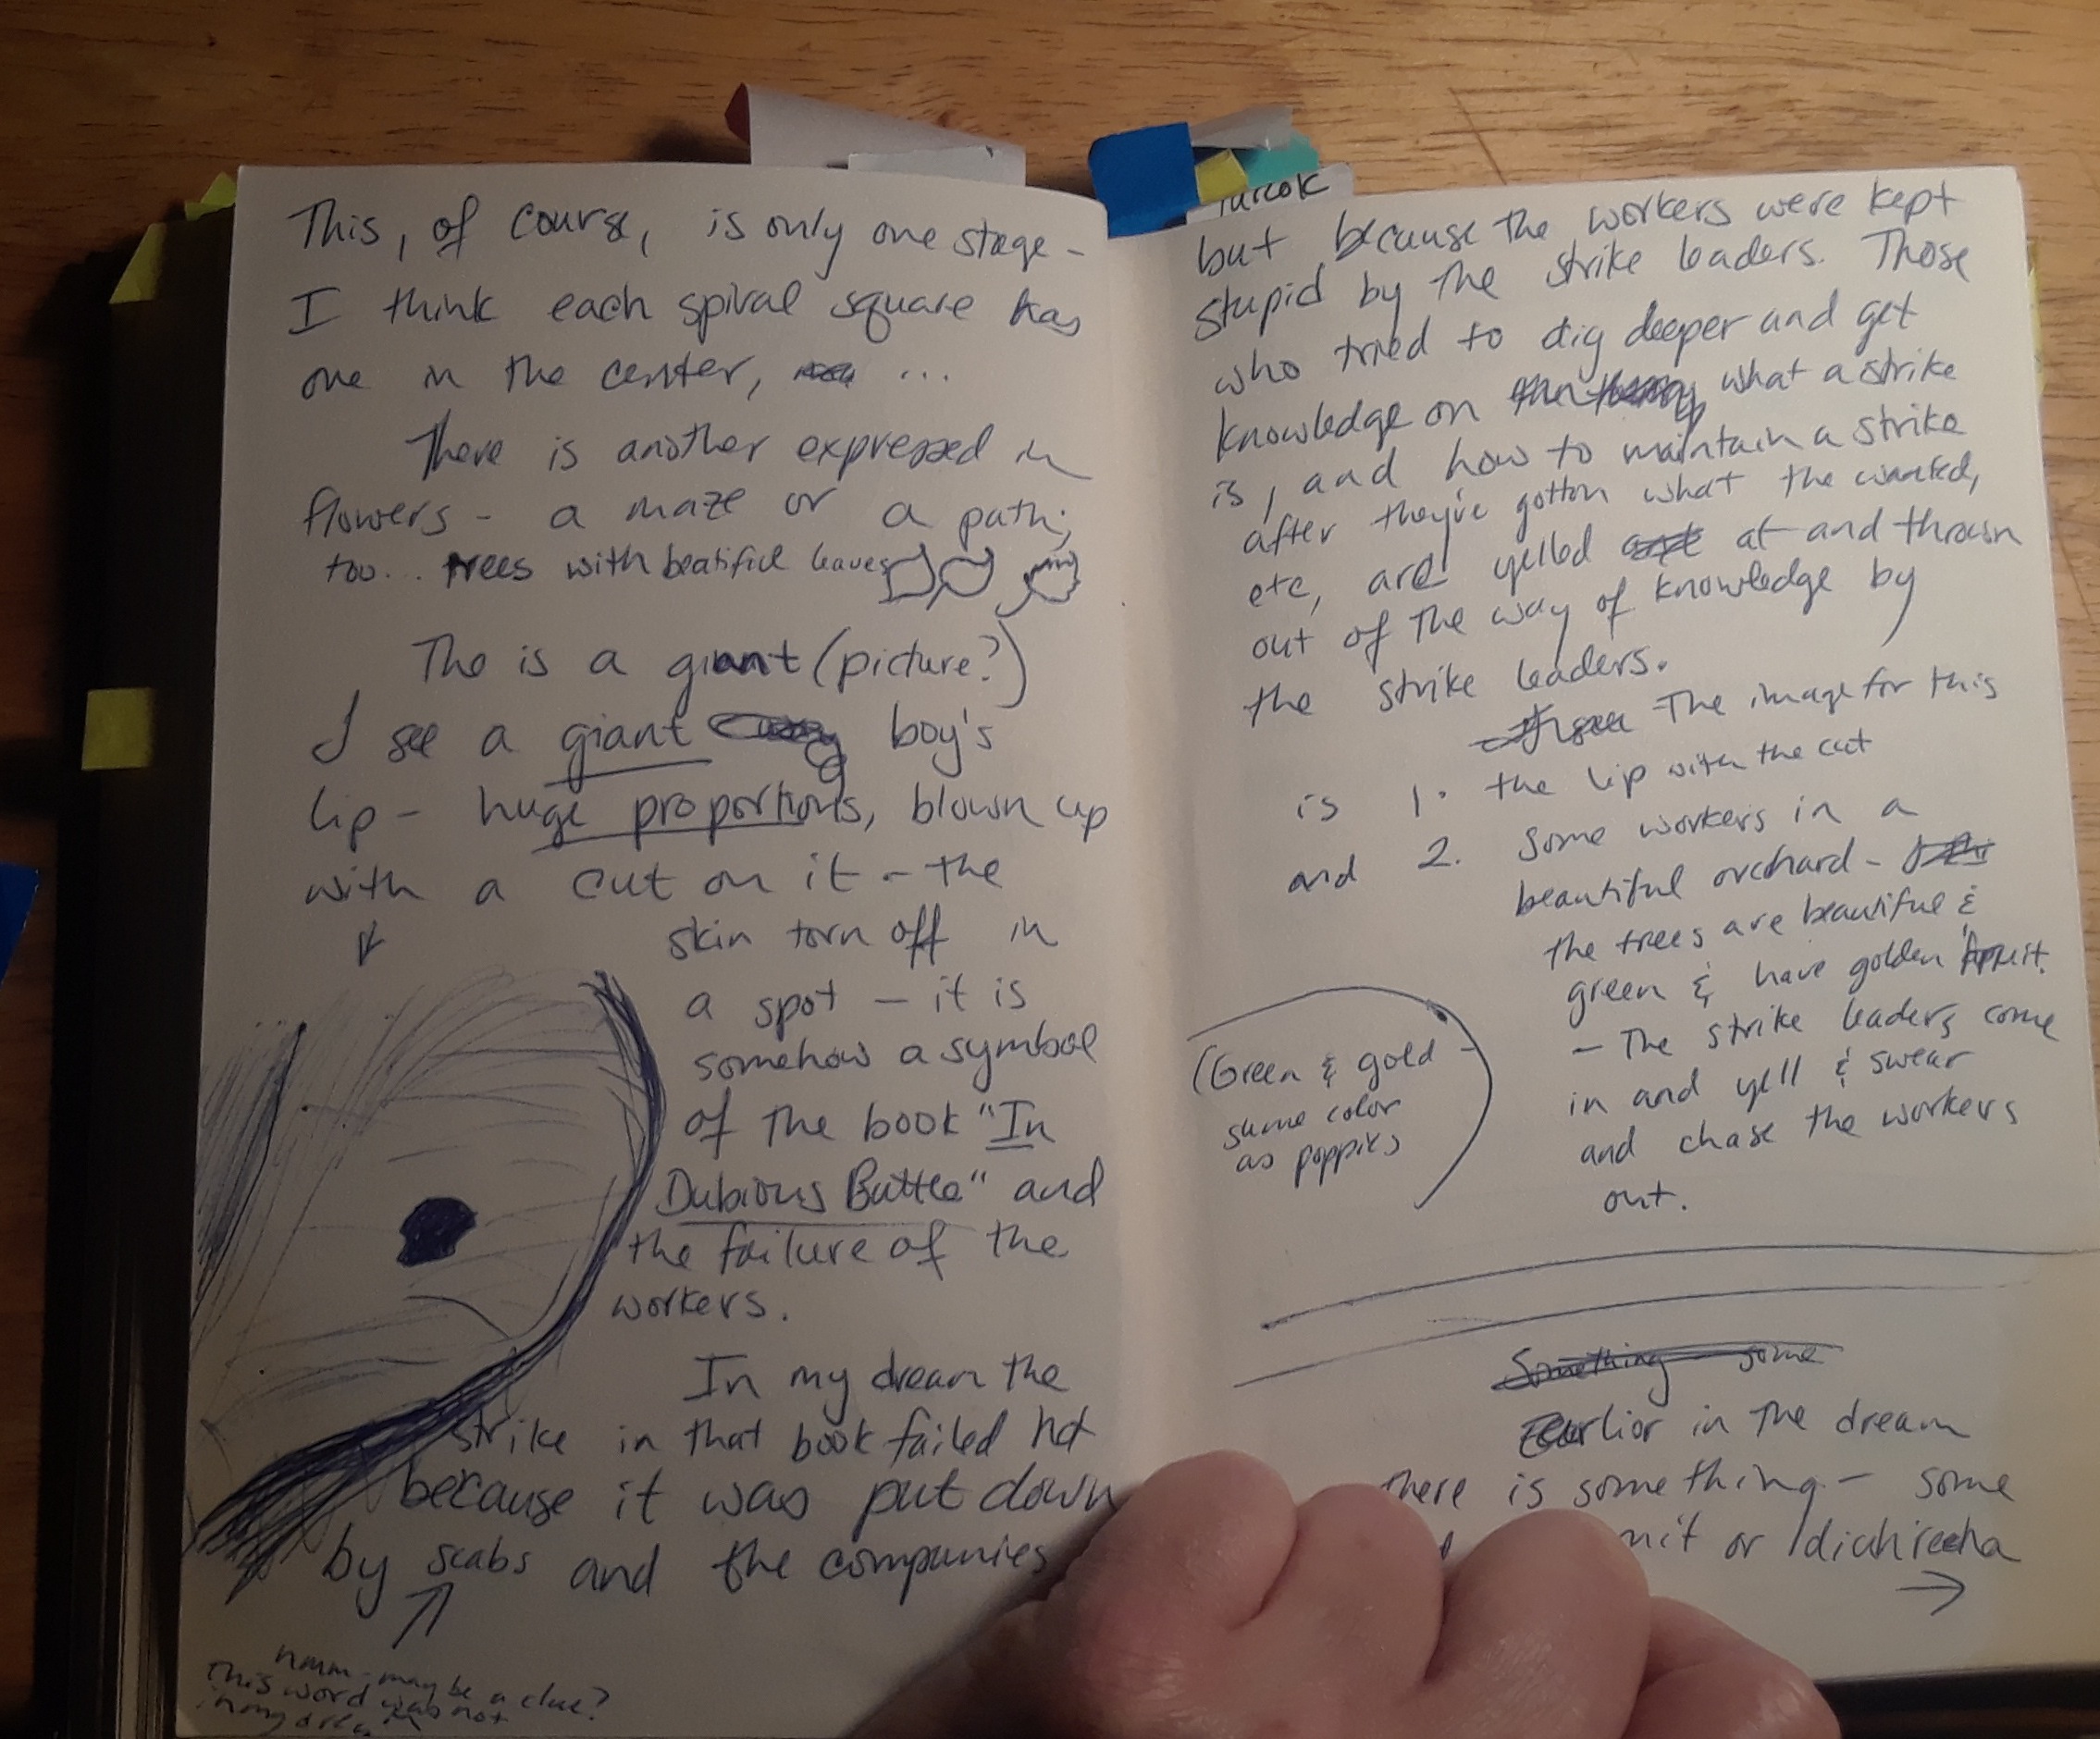 This, of course, is only one stage -
I think each spiral square has
one in the center, ...
There is another expressed in
flowers - a maze or a path;
too... trees with beatiful leaves
The is a giant (picture?)
I see a giant boy's
lip - huge proportions, blown up
with a cut on it - the
skin torn off in
a spot - it is
somehow a symbol
of the book "In
Dubious Battle" and
the failure of the
workers.
In my dream the
strike in that book failed not
because it was put down
by scabs and the companies
hmm - maybe a clue?
This word was not
in my dream
but because the workers were kept
stupid by the strike leaders. Those
who tried to dig deeper and get
knowledge on what a strike
is, and how to maintain a strike
after they've gotton what the wanted,
etc, are yelled at and thrown
out of the way of knowledge by
the strike leaders.
The image for this
is 1. the lip with the cut
and 2. Some workers in a
beautiful orchard -
the trees are beautiful &
green & have golden fruit.
- The strike leaders come
in and yell & swear
and chase the workers
out.
(Green & gold -
same color
as poppies
Something some
Earlior in the dream
there is something - some
or
→